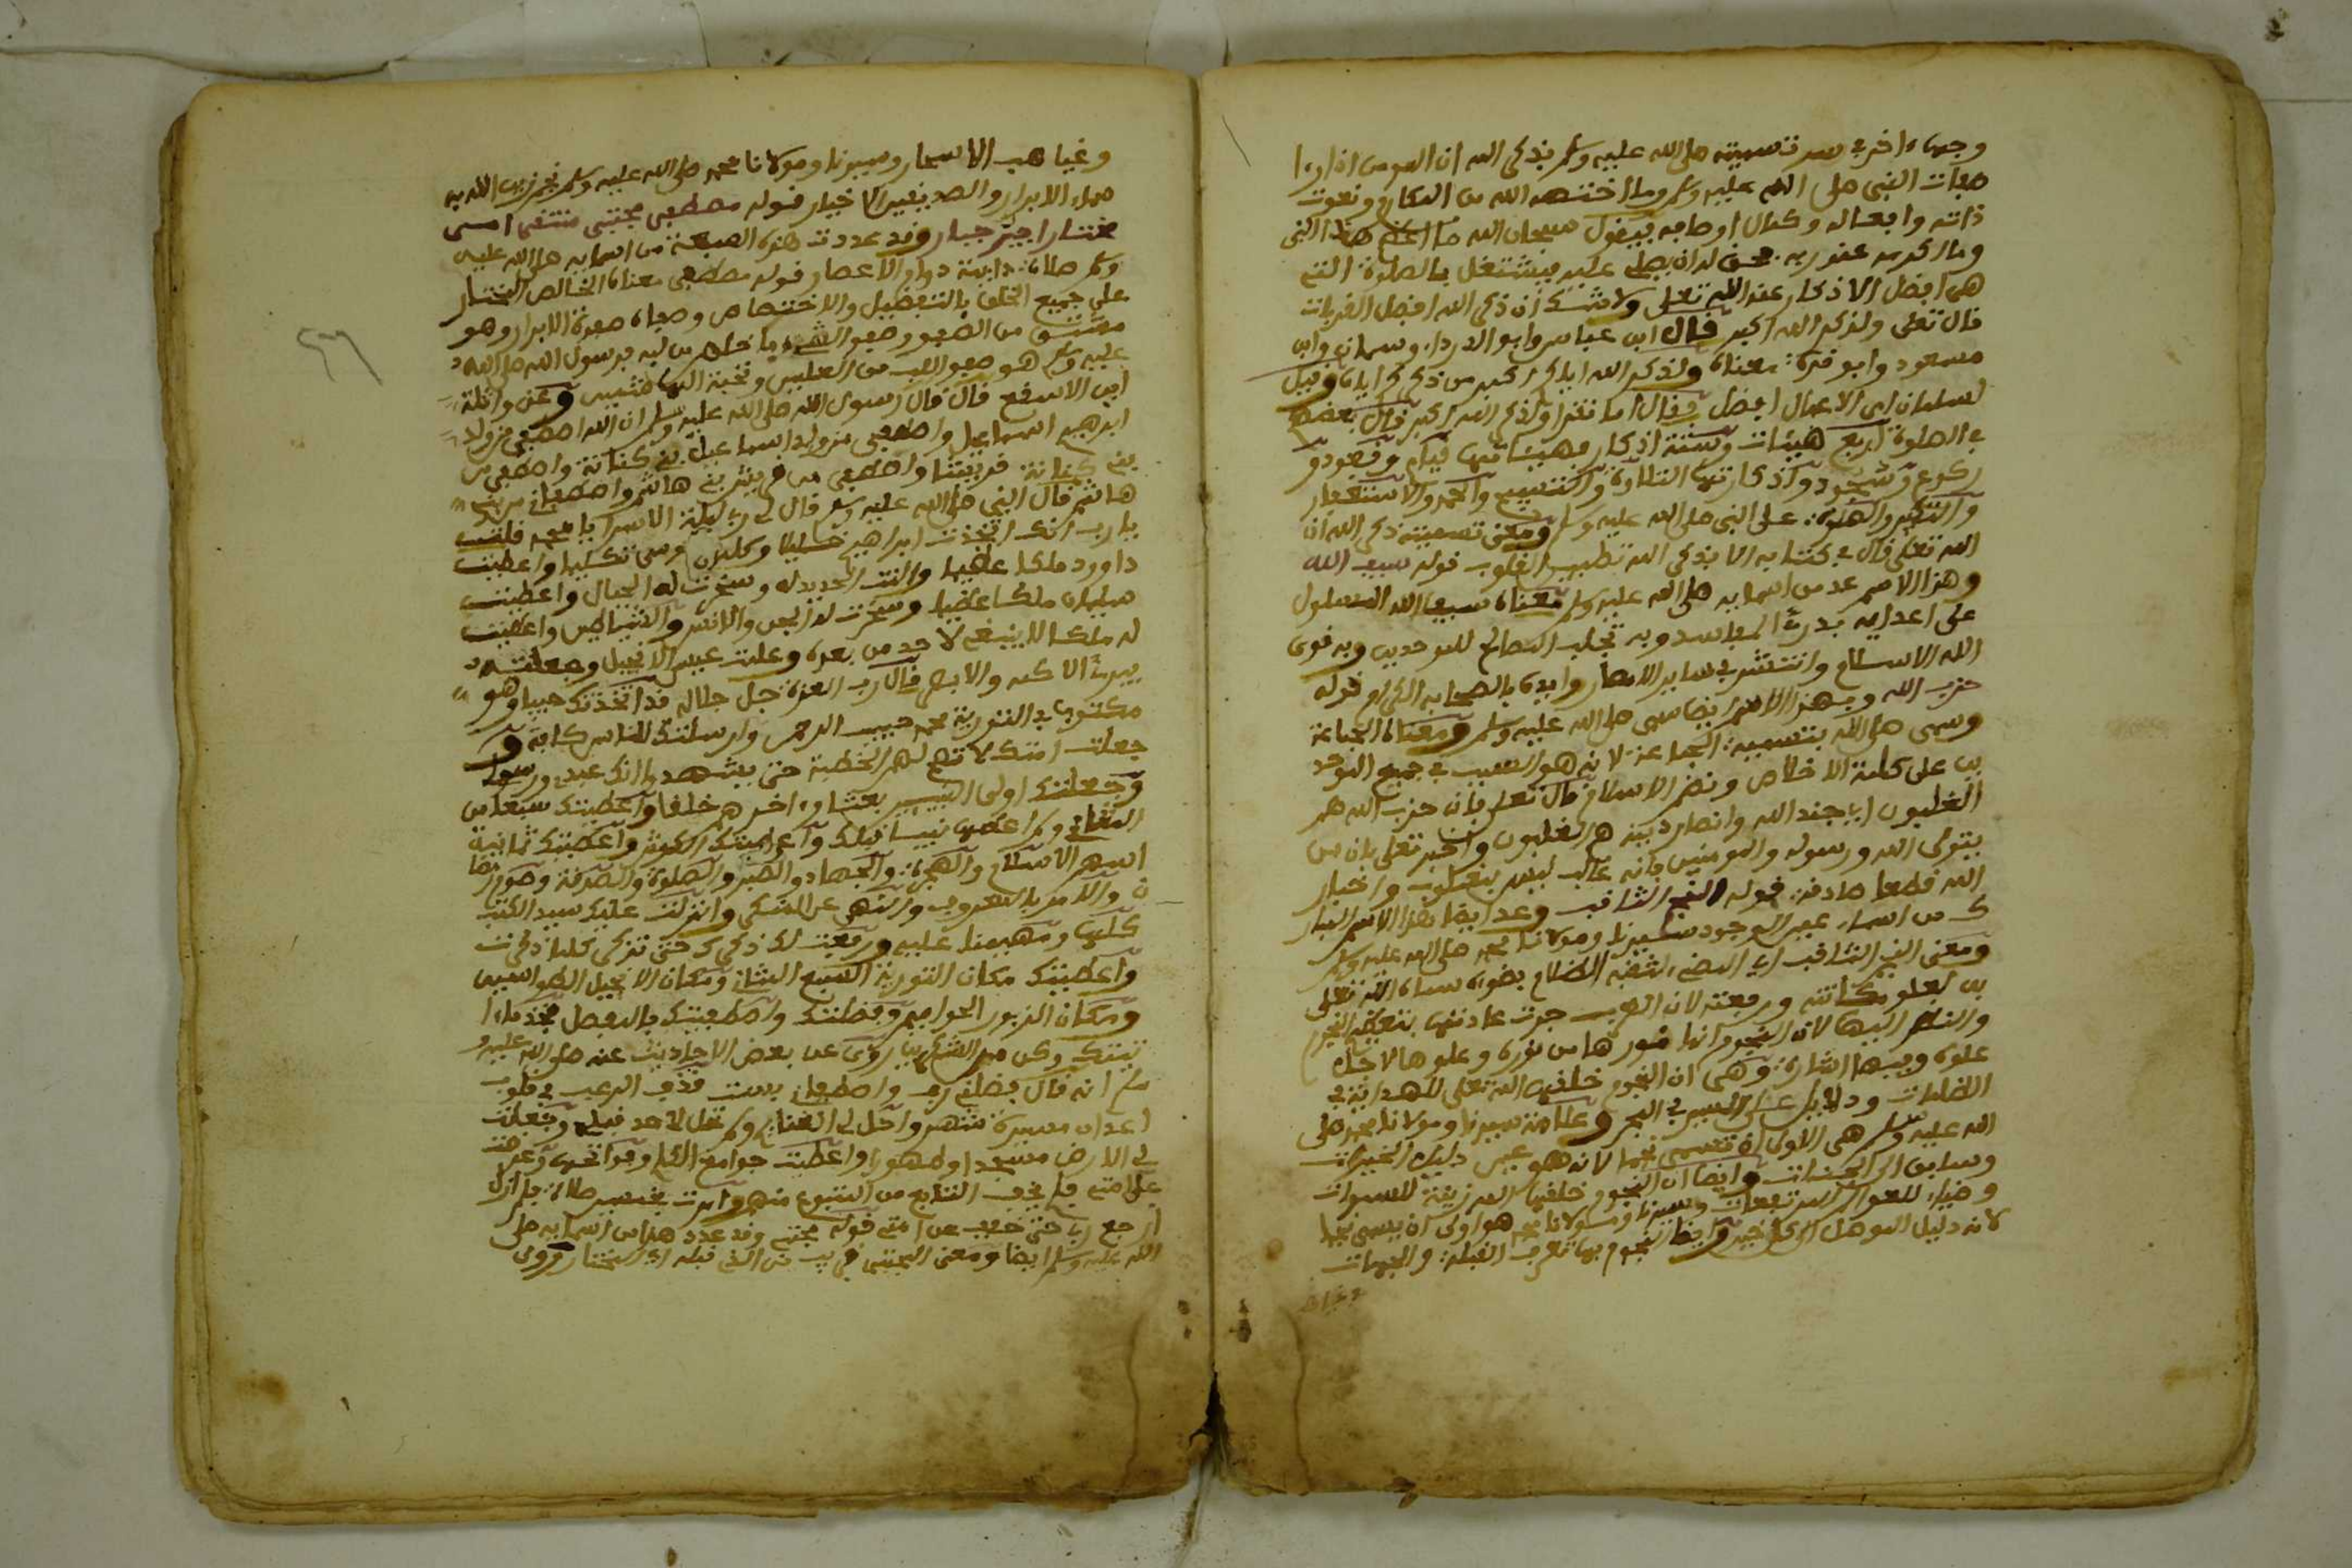 وجهاء اخر في سر تسميته صلى الله عليه وسلم بذكر الله ان المومن اذا راا
صفات النبي صلى الله عليه وسلم وما اختصه الله من المكارم ونعوت
ذاته وافعاله وكمال اوصافه فيقول سبحان الله ما اعظم هذا النبي
وما اكرمه عند ربه فحق له ان يصلي عليه فيشتغل بالصلوة التي
هي افضل الاذكار عند الله تعلى ولا شك ان ذكر الله افضل القربات
قال تعلى ولذكر الله اكبر قال ابن عباس وابو الدرداء وسلمان وابن
مسعود وابو قرة معناه ولذكر الله اياكم اكبر من ذكركم اياه وقيل
لسلمان اى الاعمال افضل فقال اما تقرا ولذكر الله اكبر قال بعضهم
في الصلوة اربع هيئات وستة اذكار فهيئاتها قيام وقعود و
ركوع وسجود واذكارها التلاوة والتسبيح والحمد والاستغفار
والتكبير والصلوة على النبي صلى الله عليه وسلم ومعنى تسميته ذكر الله ان
الله تعلى قال في كتابه الا بذكر الله تطمين القلوب قوله سيف الله
وهذا الاسم عد من اسمايه صلى الله عليه وسلم معناه سيف الله المسلول
على اعدايه بدرء المفاسد وبه تجلب المصالح للموحدين وبه قوى
الله الاسلام وانتشر في ساير الامصار وايده بالصحابه الكرام قوله
حزب الله وبهذا الاسم ايضا سمى صلى الله عليه وسلم ومعناه الجماعة
وسمى صلى الله بتسمية الجماعة لانه هو السبب في جميع الموحد
ين على كلمة الاخلاص ونصر الاسلام قال تعلى فان حزب الله هم
الغلبون اى جند الله وانصار دينه هم الغلبون واخبر تعلى بان من
يتولى الله ورسوله والمومنين فانه غالب ليس بمغلوب واخبار
الله قطعا صادقه قوله النجم الثاقب وعد ايضا هذا الاسم المبار
ك من اسماء عين الوجود سيدنا ومولانا محمد صلى الله عليه وسلم
ومعنى النجم الثاقب اى المضيء لثقبه الظلام بضوءه سماه الله تعلى
به لعلو مكانته ورفعته لان العرب جرت عادتها بتعظيم النجوم
والنظر اليها لان النجوم انما نورها من نوره وعلوها لاجل
علوه وفيها اشارة وهي ان النجوم خلقها الله تعلى للهداية في
الظلمات ودلايل على السير في البحر وعلامة سيدنا ومولانا محمد صلى
الله عليه وسلم هى الاولى ان تسمى نجما لانه هو عين دليل الخيرات
وسابق الى الحسنات وايضا ان النجوم خلقها الله زينة للسموات
وضياء للعوالم المرتفعات وسيدنا ومولانا محمد هو اولى ان يسمى نجما
لانه دليل الموصل الى كل خير وايضا النجوم بها تعرف القبلة والجهات
وغياهب
وغياهب الاسحار وسيدنا ومولانا محمد صلى الله عليه وسلم نجم زين الله به
سماء الابرار والصديقين الاخيار قوله مصطفى مجتبى منتقى امى
مختار اجير جبار وقد عددت هذه الصيغة من اسمايه صلى الله عليه
وسلم صلاة دايمة دوام الاعصار قوله مصطفى معناه الخالص المختار
على جميع الخلق بالتفضيل والاختصاص وصفاه صفوة الابرار وهو
مشتق من الصفو وصفو الشيء ما خلص من لبه فرسول الله صلى الله
عليه وسلم هو صفو اللب من العلمين ونخبة الهاشميين وعن واثلة
ابن الاسقع قال قال رسول الله صلى الله عليه وسلم ان الله اصطفى من ولد
ابرهيم اسماعيل واصطفى من ولد اسماعيل بني كنانة واصطفى من
بني كنانة قريشا واصطفى من قريش بني هاشم واصطفاني من بني
هاشم قال النبي صلى الله عليه وسلم قال لي ربي ليلة الاسراء يا محمد فقلت
يا رب انك اتخذت ابراهيم خليلا وكلمت موسى تكليما واعطيت
داوود ملكا عظيما والنت الحديد له وسخرت له الجبال واعطيت
سليمان ملكا عظيما وسخرت له الجن والانس والشياطين واعطيت
له ملكا لا ينبغي لاحد من بعده وعلمت عيسى الانجيل وجعلته
يبرئ الاكمه والابرص قال رب العزة جل جلاله قد اتخذتك حبيبا وهو
مكتوب في التورية محمد حبيب الرحمن وارسلتك للناس كافة و
جعلت امتك لا تصح لهم الخطبة حتى يشهدوا انك عبدي ورسولي
وجعلتك اولى النبيين بعثا واخرهم خلقا واعطيتك سبعا من
المثاني ولم اعطها نبيا قبلك واعطيتك الكوثر واعطيتك ثمانية
اسهم الاسلام والهجرة والجهاد والصبر والصلوة والصدقة وصوم رمضا
ن والامر بالمعروف والنهي عن المنكر وانزلت عليك سيد الكتب
كلها ومهيمنا عليه ورفعت لك ذكرك حتى تذكر كلما ذكرت
واعطيتك مكان التورية السبع المثاني ومكان الانجيل الطواسيين
ومكان الزبور الحواميم وفضلتك واصطفيتك بالمفصل فخذ ما ا
تيتك وكن من الشكرين وروى عن بعض الاحاديث عنه صلى الله عليه و
سلم انه قال فضلني ربي واصطفاني بست قذف الرعب في قلوب
اعداى مسيرة شهر واحل لي الغنايم ولم تحل لاحد قبلي وجعلت
لي الارض مسجدا وطهورا واعطيت جوامع الكلم وفواتحه وعرضت
علي امتي فلم يخف التابع من المتبوع منهم وامرت بخمسين صلاة فلم ازل
ارجع ربي حتى خفف عن امتى قوله مجتبى وقد عدد هذا من اسمايه صلى
الله عليه وسلم ايضا ومعنى المجتبى قريب من الذي قبله اى المختار وروى